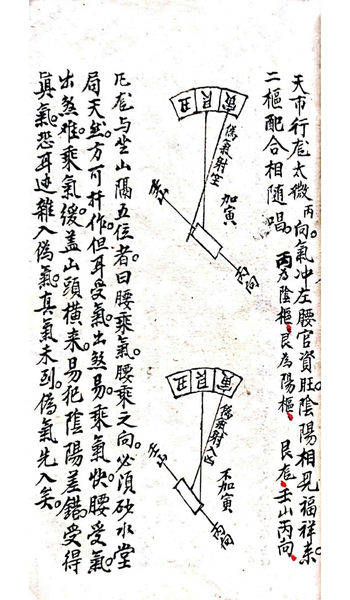 天市行龙太微丙向。氣冲左腰官資旺。陰陽相見福祥來。
二樞配合相隨唱。丙为陰樞。艮為陽樞。艮龙。壬山丙向。
寅艮丑
偽氣射坐
加寅
壬山
丙向
寅艮丑
偽氣射入
不加寅
壬山
丙向
凡龙与坐山隔五位者。曰腰乘氣。腰乘之向。必須砂水堂
局天然。方可扦作。但耳受氣。出煞易。乘氣快。腰受氣。
出煞难。乘氣缓。盖山頭橫来。易犯陰陽差錯。受得
真氣。恐耳边雜入偽氣。真氣未到。偽氣先入矣。